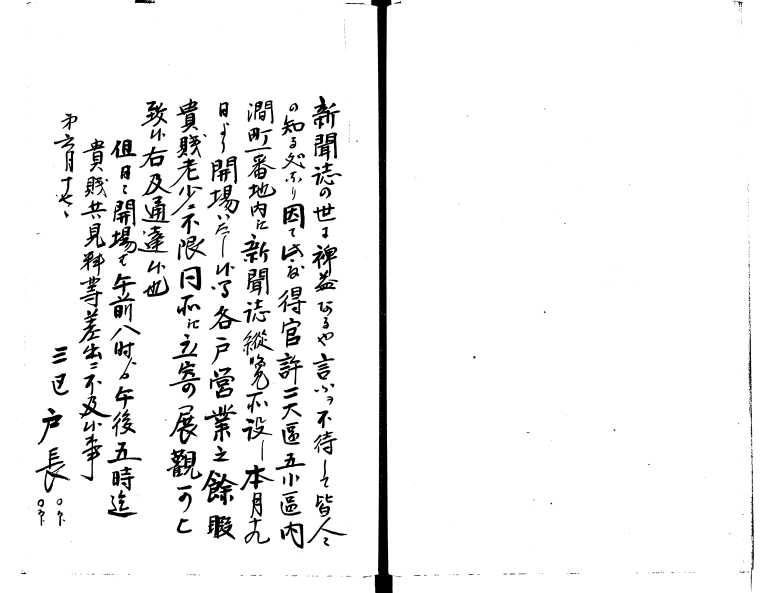 新聞誌の世に裨益あるや言ふヲ不待して皆人々
の知る処なり因て此度得官許二大區五小區内
澗町一番地内に新聞誌縦覧所設し本月十九
日より開場いたし候条各戸営業之餘暇
貴賎老少ニ不限同所に立寄り展觀可
致候右及通達候也
但日々開場も午前八时より午後五時迄
貴賎共見料等差出ニ不及候事
第六月十七日
三区戸長